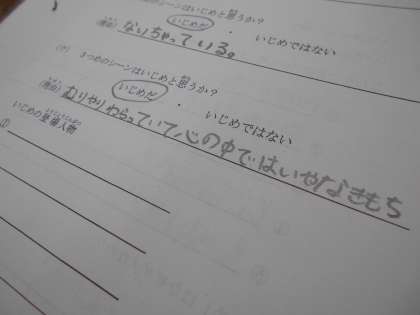 のシーンはいじめと思うか？
いじめだ ・ いじめではない
(理由) なりちゃっている。
(ウ) 3つめのシーンはいじめと思うか？
いじめだ ・ いじめではない
(理由) むりやりわらっていて心の中ではいやなきもち
いじめの登場人物
①